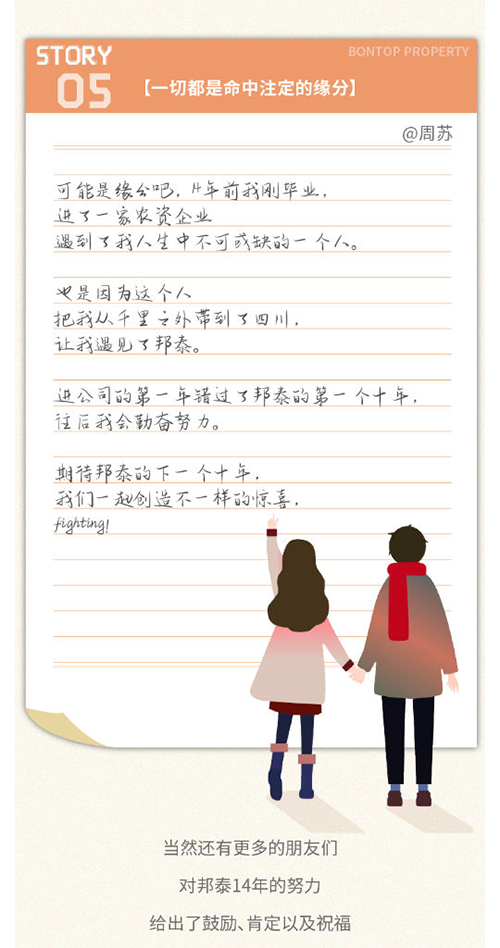 STORY
05
BONTOP PROPERTY
【一切都是命中注定的缘分】
@周苏
可能是缘分吧，14年前我刚毕业，
进了一家农资企业
遇到了我人生中不可或缺的一个人。
也是因为这个人
把我从千里之外带到了四川，
让我遇见了邦泰。
进公司的第一年错过了邦泰的第一个十年，
往后我会勤奋努力。
期待邦泰的下一个十年，
我们一起创造不一样的惊喜，
fighting!
当然还有更多的朋友们
对邦泰14年的努力
给出了鼓励、肯定以及祝福